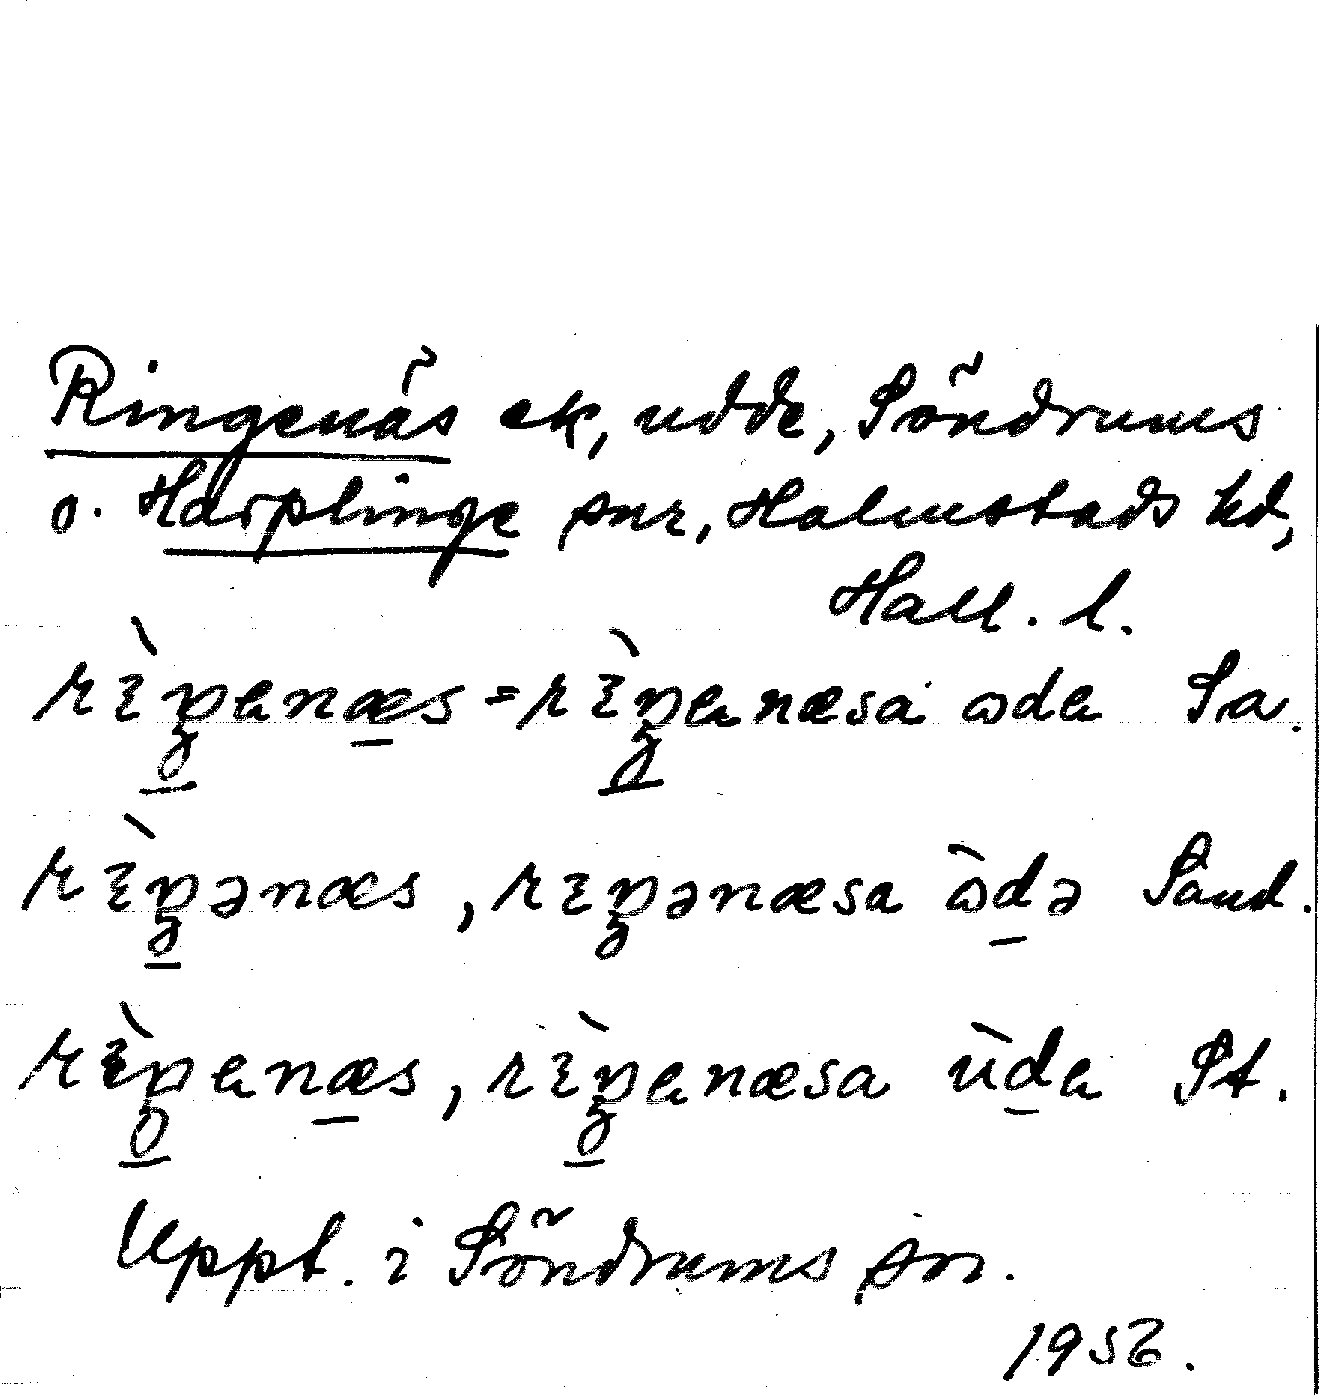 Ringenäs ek, udde, Söndrums
o. Harplinge snr, Halmstads hd,
Hall. l.
rìŋenæs = rìŋenæsa ɷde Sa.
rìŋənæs, rɪŋənæsa ɷ̀də Sand.
rìŋenæs, rìŋenæsa ùde St.
Uppt. i Söndrums sn.